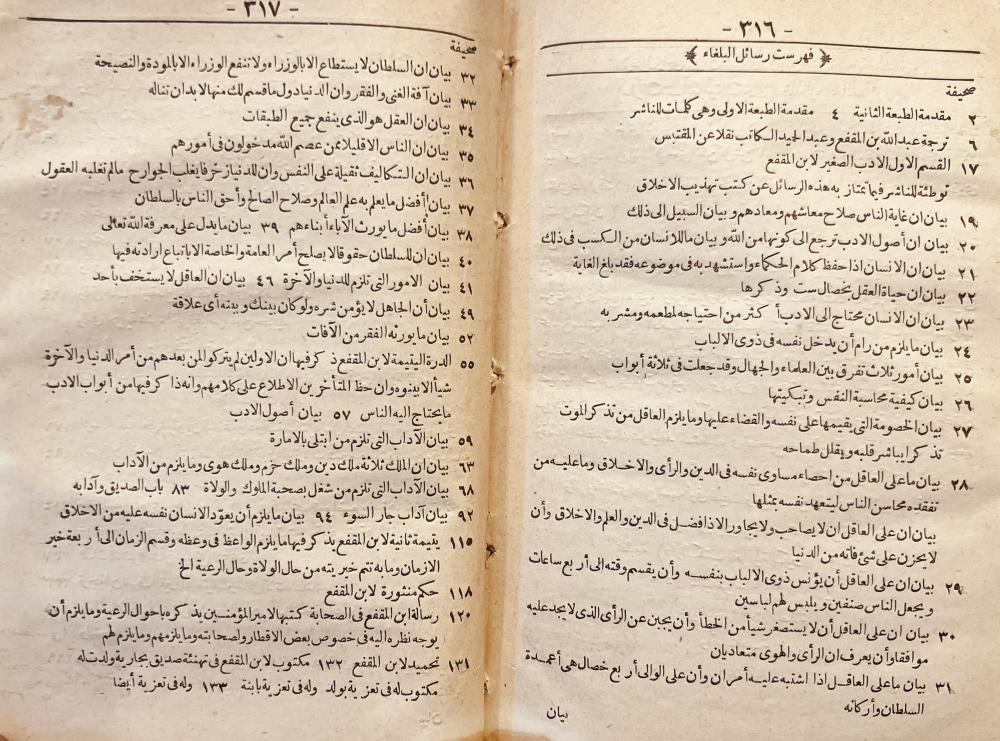 - ٣١٦ -
﴿ فهرست رسائل البلغاء ﴾
صحيفة
٢ مقدمة الطبعة الثانية ٤ مقدمة الطبعة الاولى وهى كلمات للناشر
٦ ترجمة عبد الله بن المقفع وعبد الحميد الكاتب نقلا عن المقتبس
١٧ القسم الاول الادب الصغير لابن المقفع
توطئة للناشر فيما تمتاز به هذه الرسائل عن كتب تهذيب الاخلاق
١٩ بيان ان غاية الناس صلاح معاشهم ومعادهم وبيان السبيل الى ذلك
٢٠ بيان ان أصول الادب ترجع الى كونها من الله وبيان ما للانسان من الكسب فى ذلك
٢١ بيان ان الانسان اذا حفظ كلام الحكماء واستشهد به فى موضوعه فقد بلغ الغاية
٢٢ بيان ان حياة العقل بخصال ست وذكرها
٢٣ بيان ان الانسان محتاج الى الادب أكثر من احتياجه لمطعمه ومشربه
٢٤ بيان ما يلزم من رام أن يدخل نفسه فى ذوى الالباب
٢٥ بيان أمور ثلاث تفرق بين العلماء والجهال وقد جعلت فى ثلاثة أبواب
٢٦ بيان كيفية محاسبة النفس وتبكيتها
٢٧ بيان الخصومة التى يقيمها على نفسه والقضاء عليها وما يلزم العاقل من تذكر الموت
تذكرا يباشر قلبه ويقلل طماحه
٢٨ بيان ما على العاقل من احصاء مساوى نفسه فى الدين والرأى والاخلاق وما عليه من
تفقده محاسن الناس ليتعهد نفسه بمثلها
بيان ان على العاقل ان لا يصاحب ولا يجاور الا ذا فضل فى الدين والعلم والاخلاق وأن
لا يحزن على شئ فاته من الدنيا
٢٩ بيان ان على العاقل أن يؤنس ذوى الالباب بنفسه وأن يقسم وقته الى أربع ساعات
ويجعل الناس صنفين ويلبس لهم لباسين
٣٠ بيان ان على العاقل أن لا يستصغر شيأ من الخطأ وأن يجبن عن الرأى الذى لا يجد عليه
موافقا وأن يعرف ان الرأى والهوى متعاديان
٣١ بيان ما على العاقل اذا اشتبه عليه أمران وأن على الوالى أربع خصال هى أعمدة
السلطان وأركانه
بيان
- ٣١٧ -
صحيفة
٣٢ بيان ان السلطان لا يستطاع الا بالوزراء ولا تنفع الوزراء الا بالمودة والنصيحة
٣٣ بيان آفة الغنى والفقر وان الدنيا دول ما قسم لك منها لا بد ان تناله
٣٤ بيان ان العقل هو الذى ينفع جميع الطبقات
٣٥ بيان ان الناس الا قليلا ممن عصم الله مدخولون فى أمورهم
٣٦ بيان ان التكاليف ثقيلة على النفس وان للدنيا زخرفا يغلب الجوارح ما لم تغلبه العقول
٣٧ بيان أفضل ما يعلم به علم العالم وصلاح الصالح وأحق الناس بالسلطان
٣٨ بيان أفضل ما يورث الآباء أبناءهم ٣٩ بيان ما يدل على معرفة الله تعالى
٤٠ بيان ان للسلطان حقوقا لا يصلح أمر العامة والخاصة الا باتباع ارادته فيها
٤١ بيان الامور التى تلزم للدنيا والآخرة ٤٦ بيان ان العاقل لا يستخف بأحد
٤٩ بيان أن الجاهل لا يؤمن شره ولو كان بينك وبينه أى علاقة
٥٢ بيان ما يورثه الفقر من الآفات
٥٥ الدرة اليتيمة لابن المقفع ذكر فيها ان الاولين لم يتركوا لمن بعدهم من أمر الدنيا والآخرة
شيأ الا بينوه وان حظ المتأخرين الاطلاع على كلامهم وانه ذاكر فيها من أبواب الادب
ما يحتاج اليه الناس ٥٧ بيان أصول الادب
٥٩ بيان الآداب التى تلزم من ابتلى بالامارة
٦٣ بيان ان الملك ثلاثة ملك دين وملك حزم وملك هوى وما يلزم من الآداب
٦٨ بيان الآداب التى تلزم من شغل بصحبة الملوك والولاة ٨٣ باب الصديق وآدابه
٩٢ بيان آداب جار السوء ٩٤ بيان ما يلزم أن يعوّد الانسان نفسه عليه من الاخلاق
١١٥ يتيمة ثانية لابن المقفع يذكر فيها ما يلزم الواعظ فى وعظه وقسم الزمان الى أربعة خير
الازمان وما به تتم خيريته من حال الولاة وحال الرعية الخ
١١٨ حكم منثورة لابن المقفع
١٢٠ رسالة ابن المقفع فى الصحابة كتبها لامير المؤمنين يذكره باحوال الرعية وما يلزم أن
يوجه نظره اليه فى خصوص بعض الاقطار ولصحابته وما يلزمهم وما يلزم لهم
١٣١ تحميد لابن المقفع ١٣٢ مكتوب لابن المقفع فى تهنئة صديق بجارية ولدت له
مكتوب له فى تعزية بولد وله فى تعزية بابنة ١٣٣ وله فى تعزية أيضا